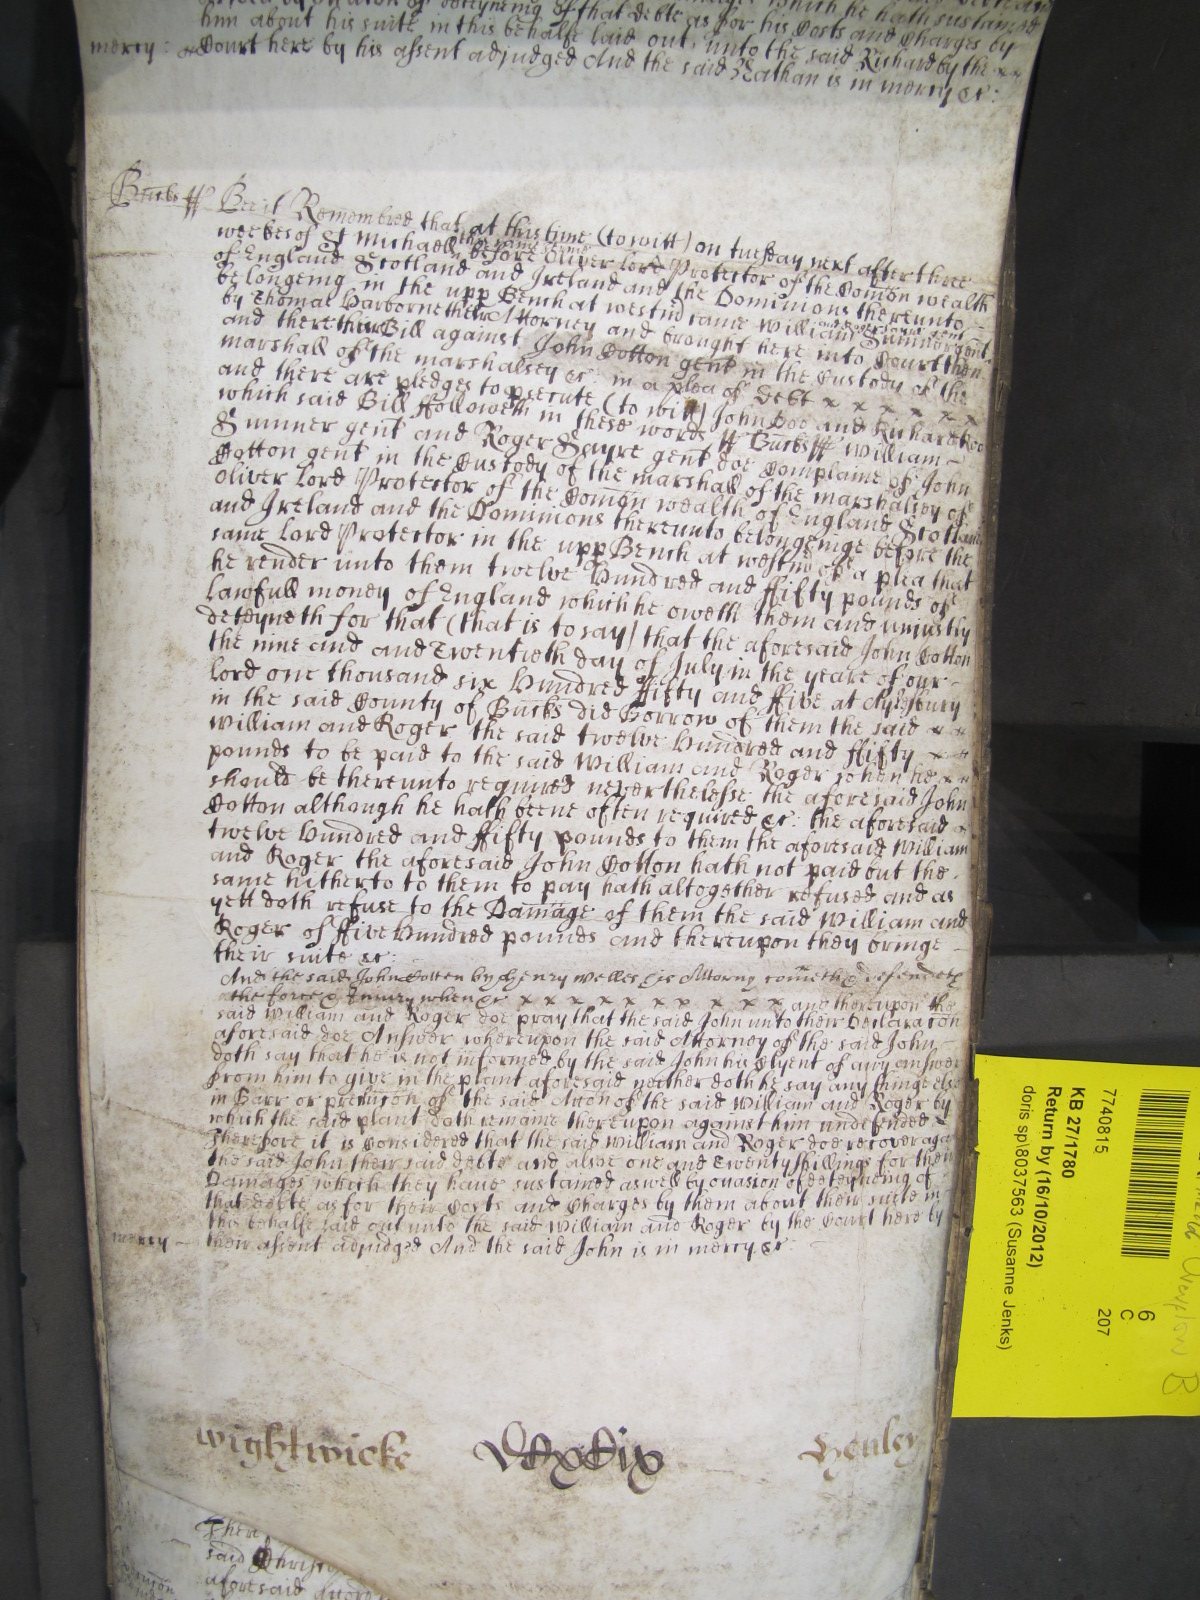 him about his suite in this behalfe laid out, unto the said Richard by the
mercy : Court here by his assent adjudged And the said Nathan is in mercy &c:
Bucks ss Bee it Remembred that at this time (to witt) on tuesday next after three
weekes of St Michaell this same terme before Oliver Lord Protector of the Comon wealth
of England Scotland and Ireland and the Dominions thereunto
belongeing in the upp Bench at westm came William Sumner gent
by Thomas Harborne their Attorney and brought here into Court then
and there their Bill against John Cotton gent in the Custody of the
marshall of the marshalsey &c: in a plea of Debt x x x x x x
and there are pledges to psecute (to witt) John Doe and Richard Roo
which said Bill ffolloweth in these words ss Bucks ss William
Sumner gent and Roger Sayre gent doe Complaine of John
Cotton gent in the Custody of the marshall of the marshalsey of
Oliver Lord Protector of the Comon wealth of England Scotland
and Ireland and the Dominions thereunto belongeinge before the
same Lord Protector in the upp Bench at westm of a plea that
he render unto them twelve Hundred and ffifty pounds of
Lawfull money of England which he oweth them and unjustly
deteyneth for that (that is to say) that the aforesaid John Cotton
the nine and and Twentieth day of July in the yeare of our
Lord one thousand six Hundred ffifty and ffive at Aylesbury
in the said County of Bucks did Borrow of them the said x x
William and Roger the said twelve Hundred and ffifty x x
pounds to be paid to the said William and Roger when he x x
should be thereunto required neverthelesse the aforesaid John
Cotton although he hath beene often required &c: the aforesaid
twelve Hundred and ffifty pounds to them the aforesaid William
and Roger the aforesaid John Cotton hath not paid but the
same hitherto to them to pay hath altogether refused and as
yett doth refuse to the Damage of them the said William and
Roger of ffive Hundred pounds and thereupon they bringe
their suite &c:
And the said John Cotten by Henry Welles his Attorny cometh & defendeth
the force & Iniury when &c x x x x x x x x x x and thereupon the
said William and Roger doe pray that the said John unto their Declaracon
aforesaid doe Answer whereupon the said Attorney of the said John
doth say that he is not informed by the said John his Clyent of any answer
from him to give in the plaint aforesaid neither doth he say any thinge else
in Barr or preclusion of the said Accon of the said William and Roger by
which the said plaint doth remaine thereupon against him undefended
Therefore it is Considered that the said William and Roger doe recover against
the said John their said debte and alsoe one and Twenty shillings for their
Damages which they have sustained aswell by occasion of deteyneing of
that debte as for their Costs and Charges by them about their suite in
this behalfe laid out unto the said William and Roger by the Court here by
mercy their assent adjudged And the said John is in mercy &c:
Wightwicke Henley
Ther
said Christo
aforesaid
7740815
KB 27/1780
Return by (16/10/2012)
doris sp\8037563 (Susanne Jenks)
6
C
207
B